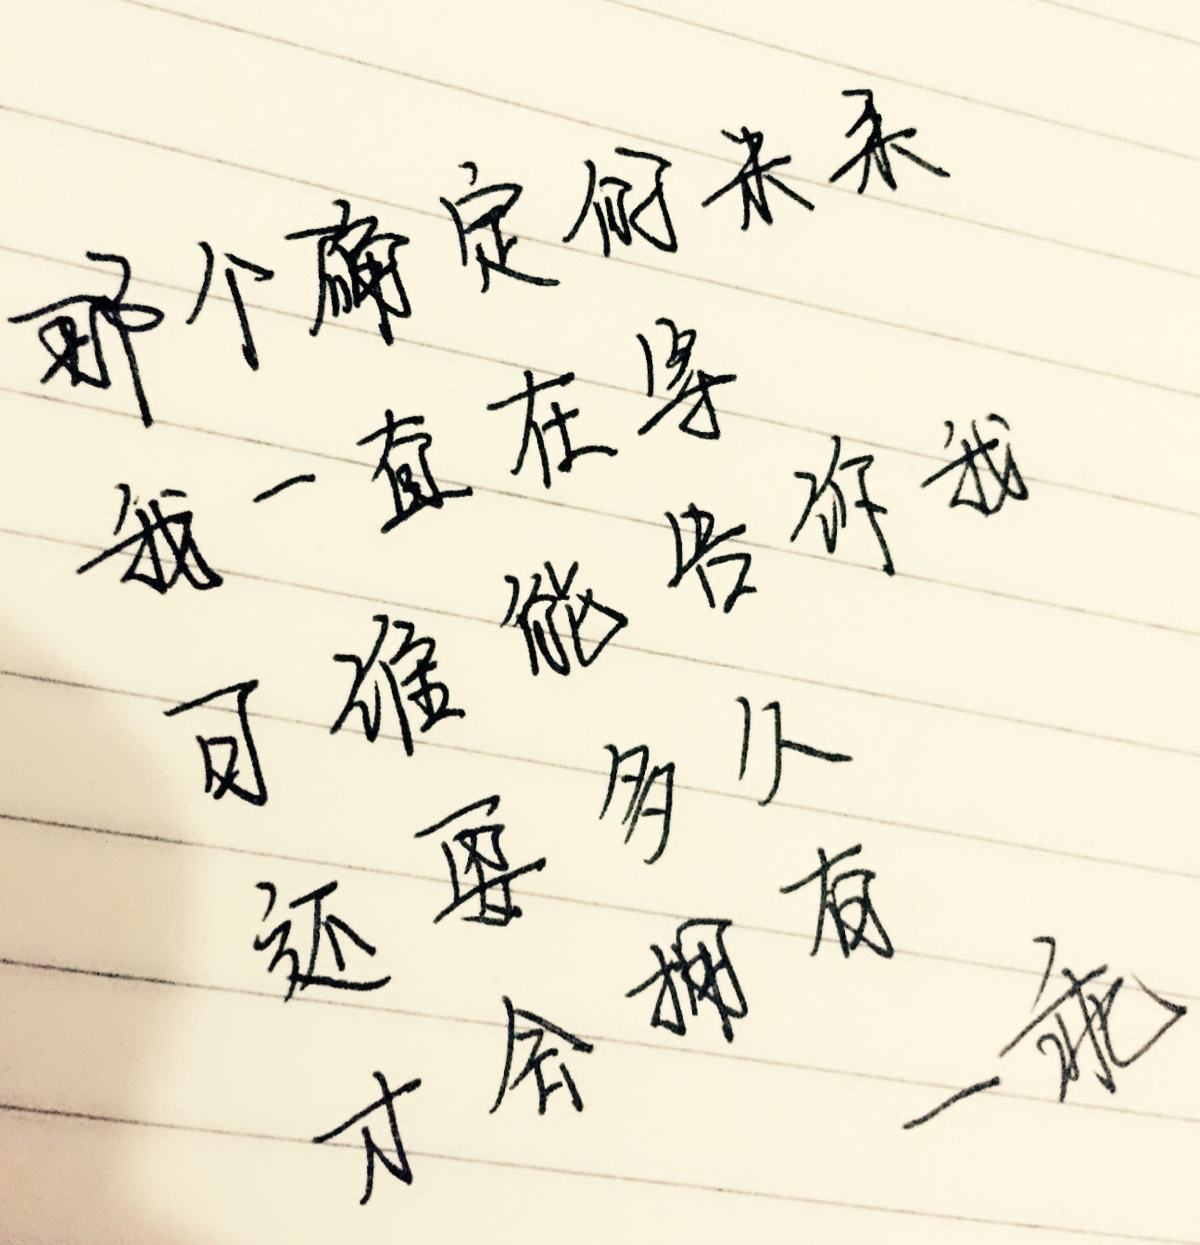 那个确定的未来
我一直在寻
可谁能告诉我
还要多久
才会拥有